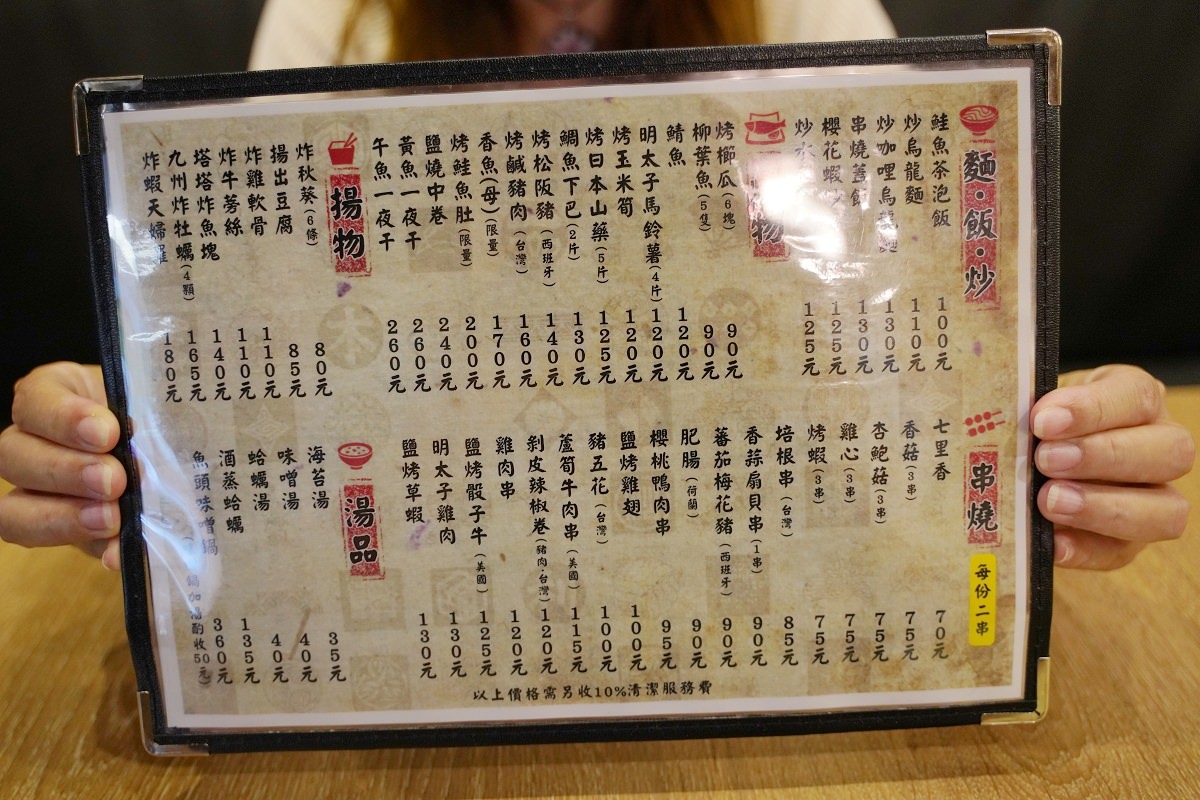 麵・飯・炒
鮭魚茶泡飯 100元
炒烏龍麵 110元
炒咖哩烏龍麵 130元
串燒蓋飯 130元
櫻花蝦炒 125元
炒水 125元
物
烤櫛瓜(6塊) 90元
柳葉魚(5隻) 90元
鯖魚 120元
明太子馬鈴薯(4片) 120元
烤玉米筍 120元
烤日本山藥(5片) 125元
鯛魚下巴(2片) 130元
烤松阪豬(西班牙) 140元
烤鹹豬肉(台灣) 160元
香魚(母)(限量) 170元
烤鮭魚肚(限量) 200元
鹽燒中卷 240元
黃魚一夜干 260元
午魚一夜干 260元
揚物
炸秋葵(6條) 80元
揚出豆腐 85元
炸雞軟骨 110元
炸牛蒡絲 110元
塔塔炸魚塊 140元
九州炸牡蠣(4顆) 165元
炸蝦天婦羅 180元
串燒
每份二串
七里香 70元
香菇(3串) 75元
杏鮑菇(3串) 75元
雞心(3串) 75元
烤蝦(3串) 75元
培根串(台灣) 85元
香蒜扇貝串(1串) 90元
蕃茄梅花豬(西班牙) 90元
肥腸(荷蘭) 90元
櫻桃鴨肉串 95元
鹽烤雞翅 100元
豬五花(台灣) 100元
蘆筍牛肉串(美國) 115元
剝皮辣椒卷(豬肉·台灣) 120元
雞肉串 120元
鹽烤骰子牛(美國) 125元
明太子雞肉 130元
鹽烤草蝦 130元
湯品
海苔湯 35元
味噌湯 40元
蛤蠣湯 40元
酒蒸蛤蠣 135元
魚頭味噌鍋 360元
鍋加湯酌收50元)
以上價格需另收10%清潔服務費